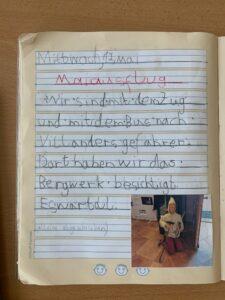 Mittwoch, 13. Mai
Maiausflug
Wir sind mit dem Zug
und mit dem Bus nach
Villanders gefahren.
Dort haben wir das
Bergwerk besichtigt.
Es war toll.